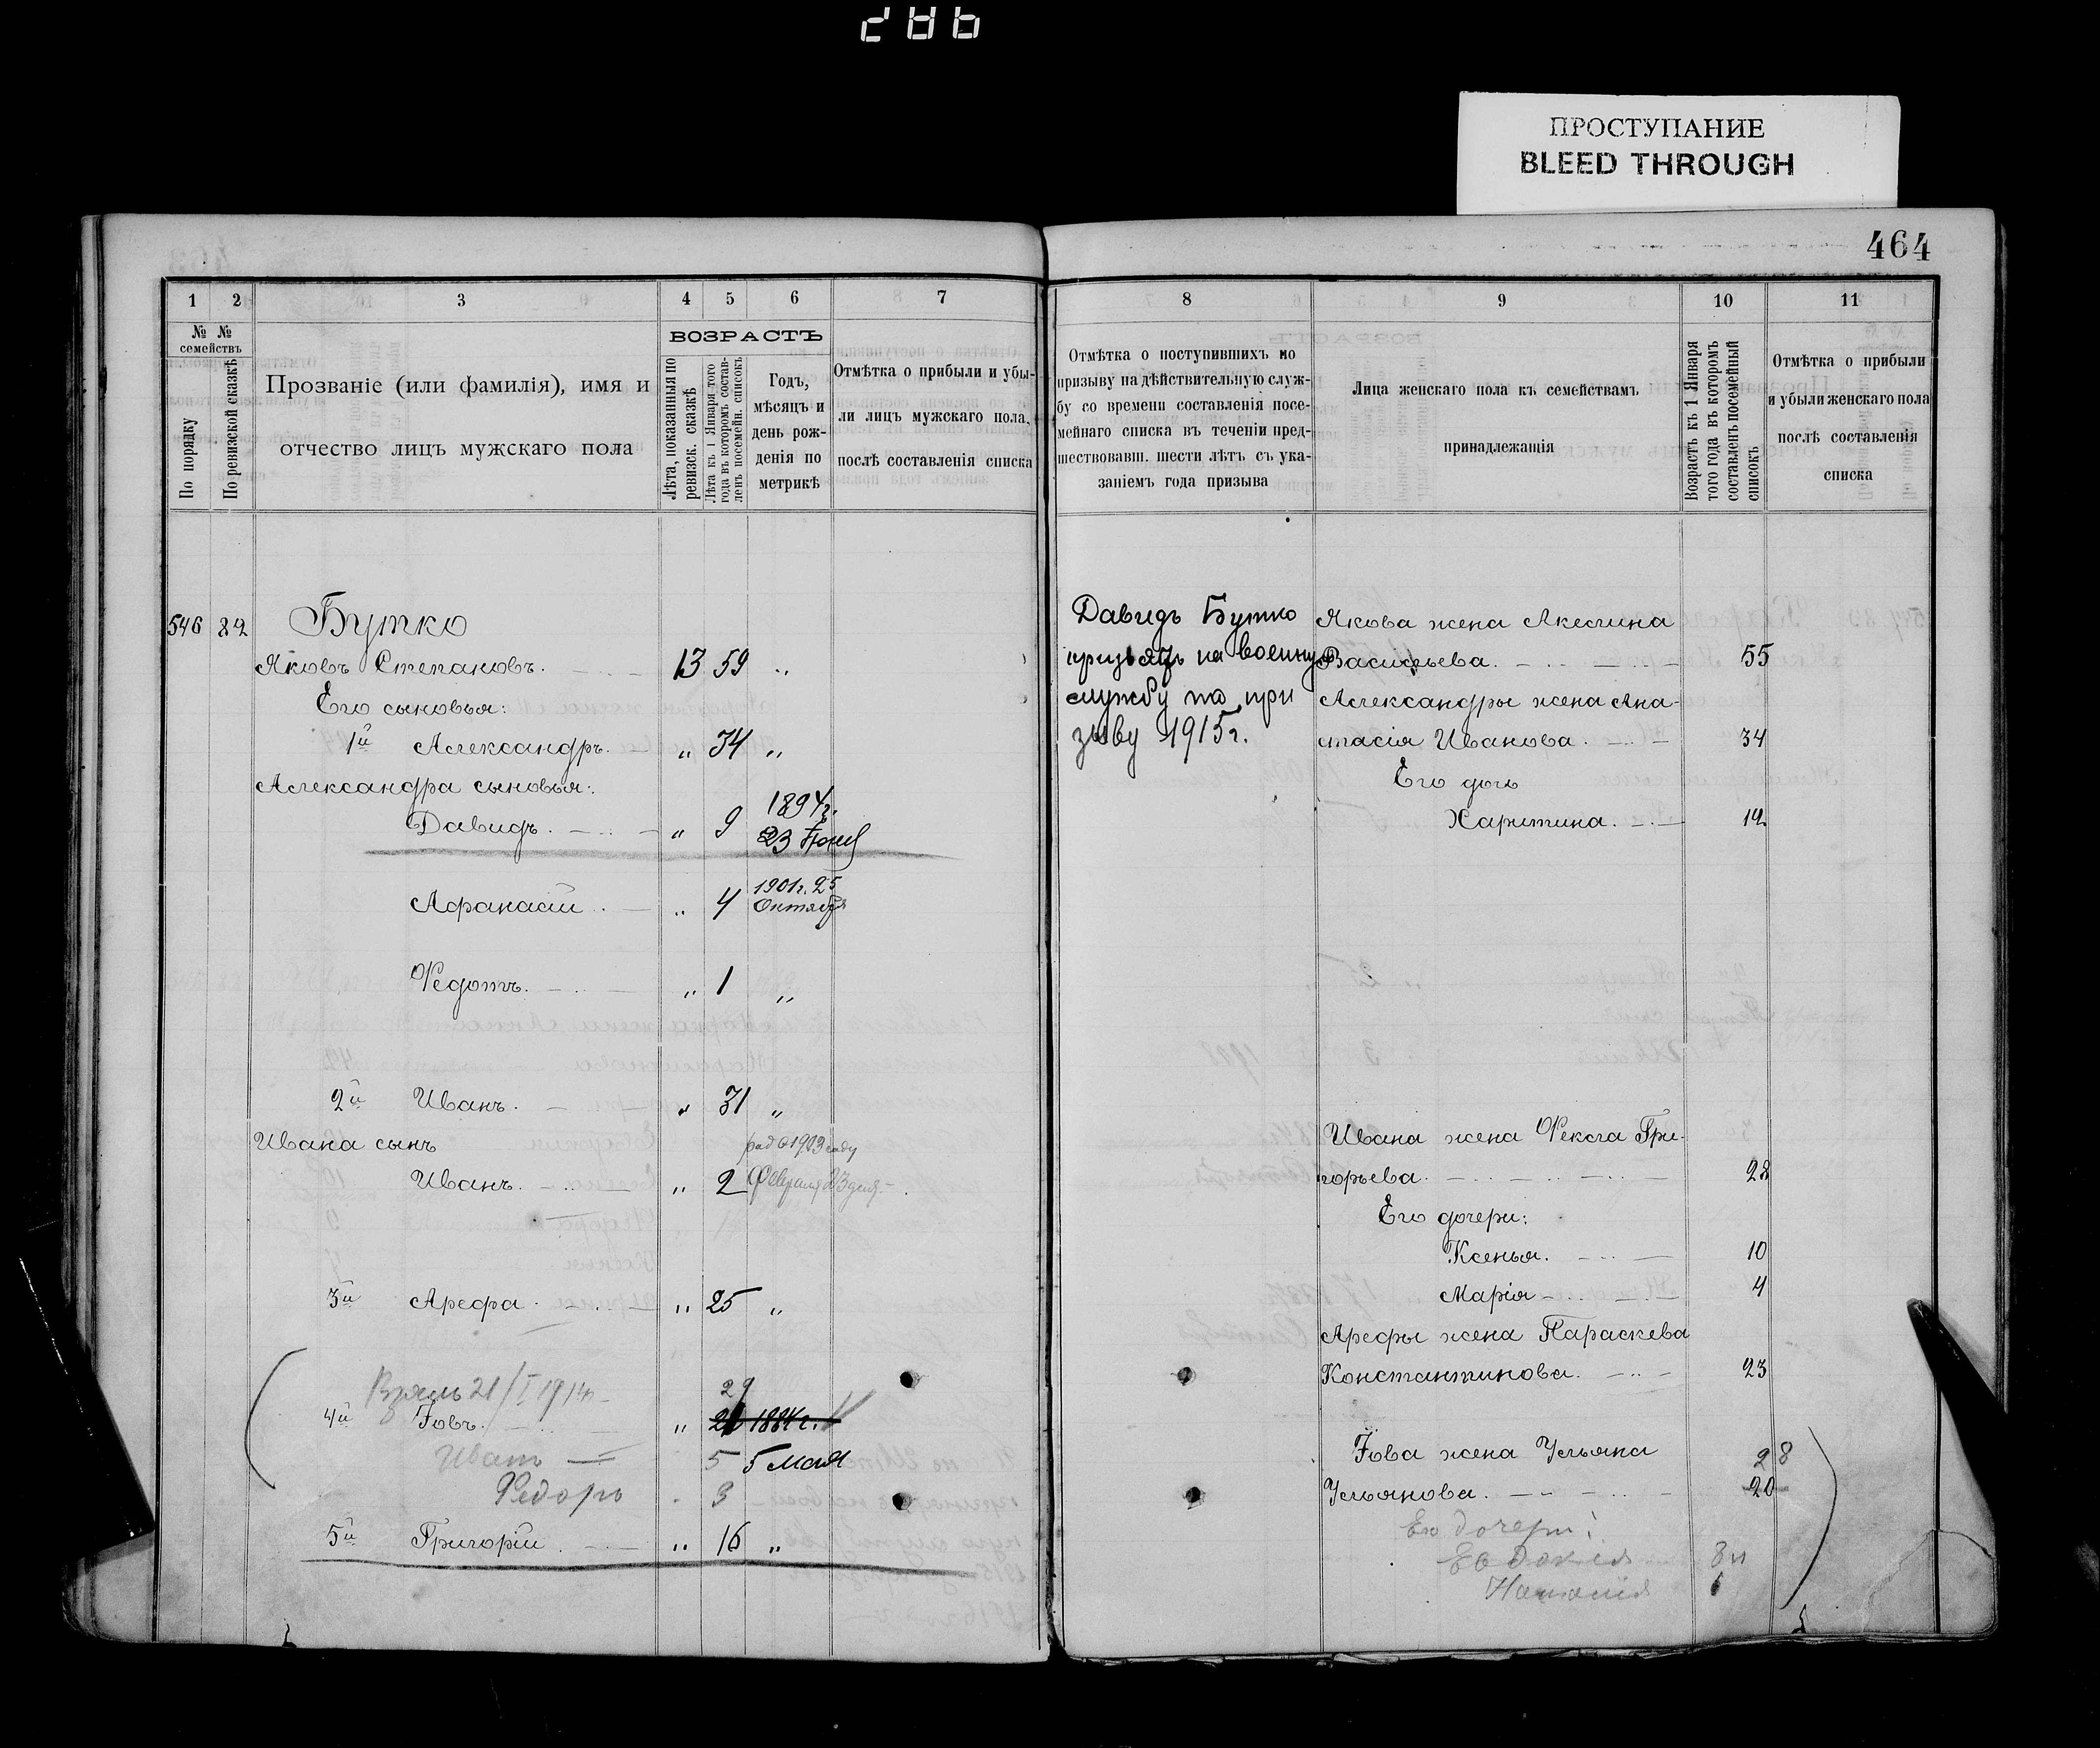 286
ПРОСТУПАНИЕ
BLEED THROUGH
464
1 2 3 4 5 6 7
№ № семействъ
По порядку
По ревизской сказкѣ
Прозваніе (или фамилія), имя и
отчество лицъ мужскаго пола
ВОЗРАСТЪ
Лѣта, показанныя по
ревизск. сказкѣ
Лѣта къ 1 Января того
года въ которомъ состав-
ленъ посемейн. списокъ
Годъ,
мѣсяцъ и
день рож-
денія по
метрикѣ
Отмѣтка о прибыли и убы-
ли лицъ мужскаго пола,
послѣ составленія списка
546 82 Бутко
Яковъ Степановъ. 13 59 „
Его сыновья:
1й Александръ. „ 34 „
Александра сыновья:
1894г.
Давидъ. „ 9 23 Іюня
1901г. 25
Афанасій „ 4 Октября
Федотъ. „ 1 „
2й Иванъ. „ 31 „
Ивана сынъ род 1903 году
Иванъ. „ 2 Февраля 23 дня
3й Арефа. „ 25 „
21/I 1914
29
4й Іовъ. „ 1884г.
Иванъ 5 5 Мая
Федоръ 3
5й Григорій „ 16 „
8 9 10 11
Отмѣтка о поступившихъ по
призыву на дѣйствительную служ-
бу со времени составленія посе-
мейнаго списка въ теченіи пред-
шествовавш. шести лѣтъ съ ука-
заніемъ года призыва
Лица женскаго пола къ семействамъ
принадлежащія
Возрастъ къ 1 Января
того года въ которомъ
составленъ посемейный
списокъ
Отмѣтка о прибыли
и убыли женскаго пола
послѣ составленія
списка
Давидъ Бутко
призванъ на военную
службу по при
зыву 1915г.
Якова жена Акелина
Васильева. 55
Александры жена Ана-
стасія Иванова. 34
Его дочь
Харитина. 12
Ивана жена Фекла Гри-
горьева. 28
Его дочери:
Ксенья. 10
Марія 4
Арефы жена Параскева
Константинова. 23
Іова жена Ульяна 28
Ульянова. 20
Его дочери:
Евдокія 8
Наталія 6